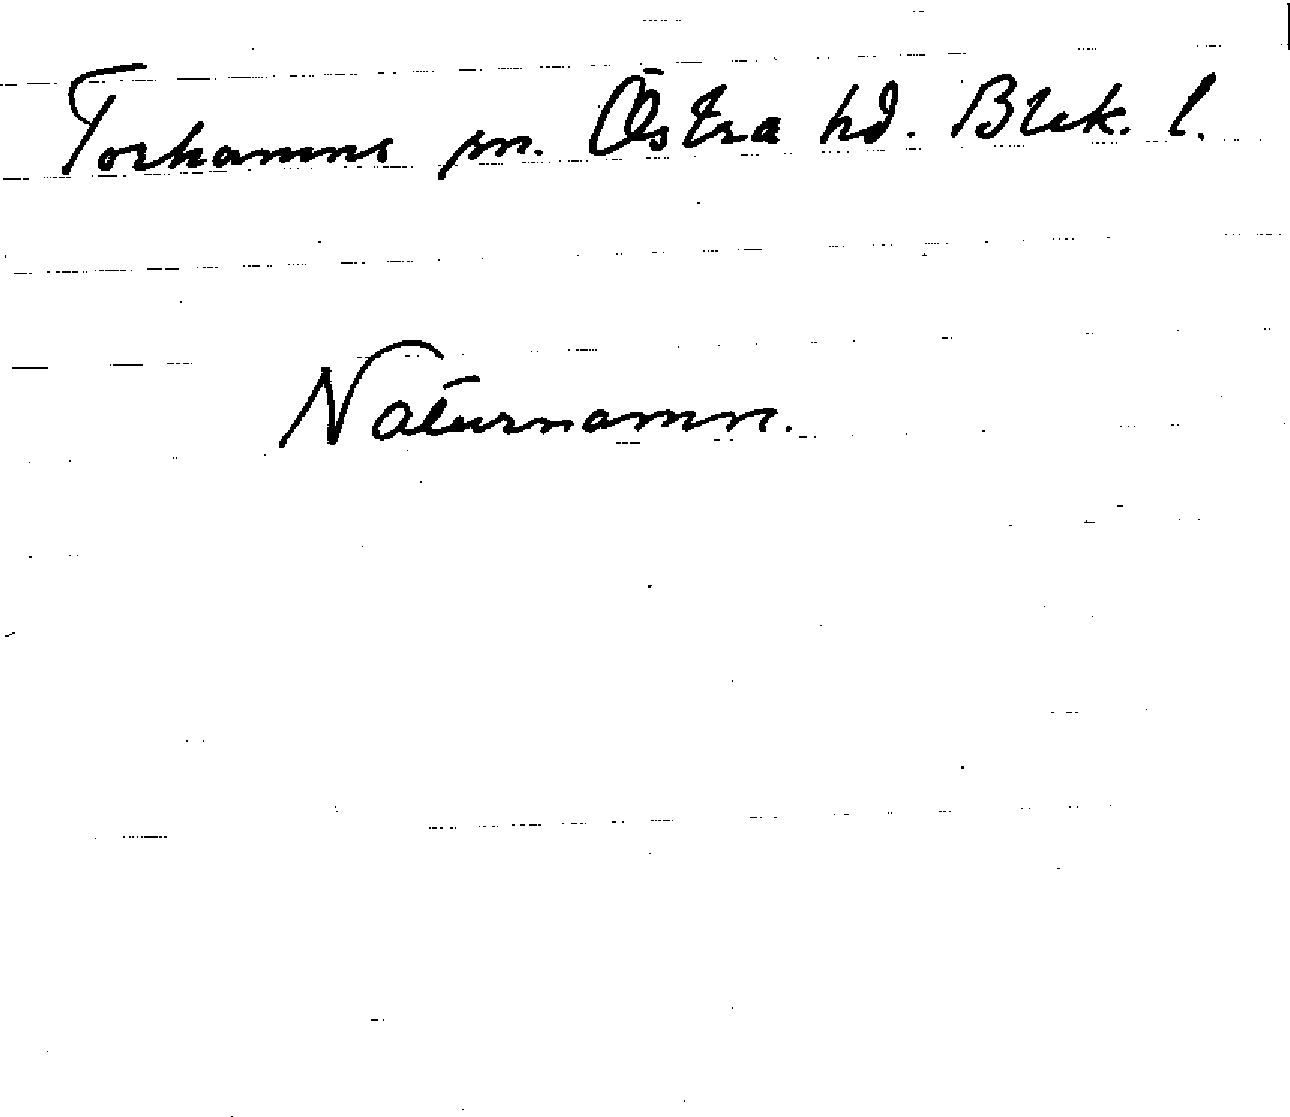 Torhamns sn. Östra hd. Blek. l.
Naturnamn.